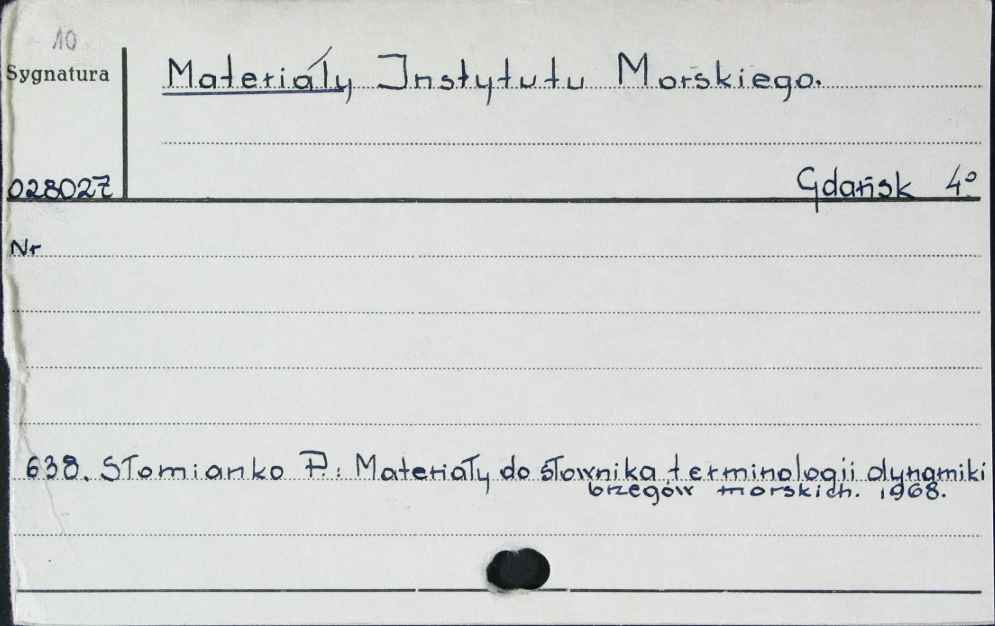 10
Sygnatura
Materiały Instytutu Morskiego.
028027
Gdańsk 4º
Nr
638. Słomianko P.: Materiały do słownika terminologii dynamiki
brzegów morskich. 1968.